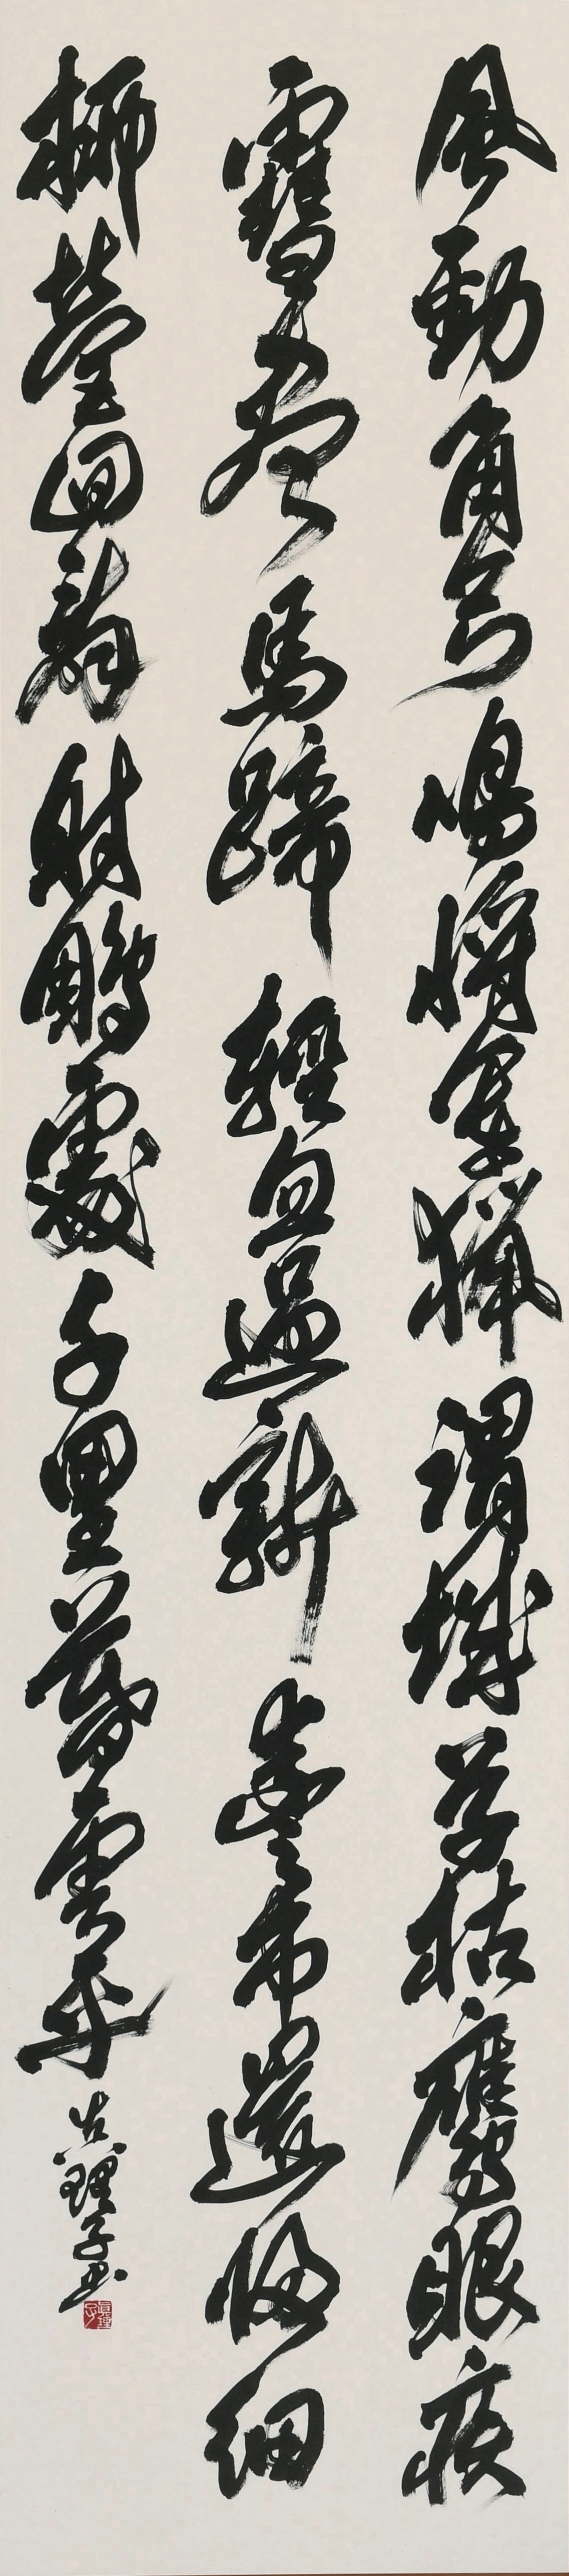 風勁角弓鳴將軍獵渭城草枯鷹眼疾
雪盡馬蹄輕忽過新豐市還歸細
柳營回看射鵰處千里暮雲平
真理子書